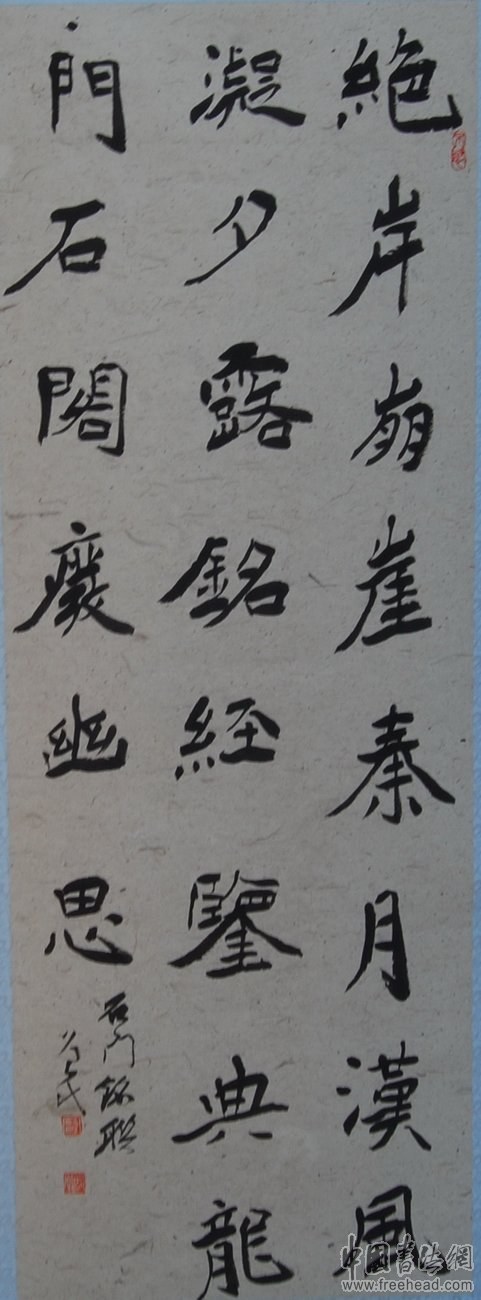 絶岸崩崖秦月漢風
凝夕露銘經鑒典龍
門石闊癈幽思
石門
中国书法網
www.freehead.com